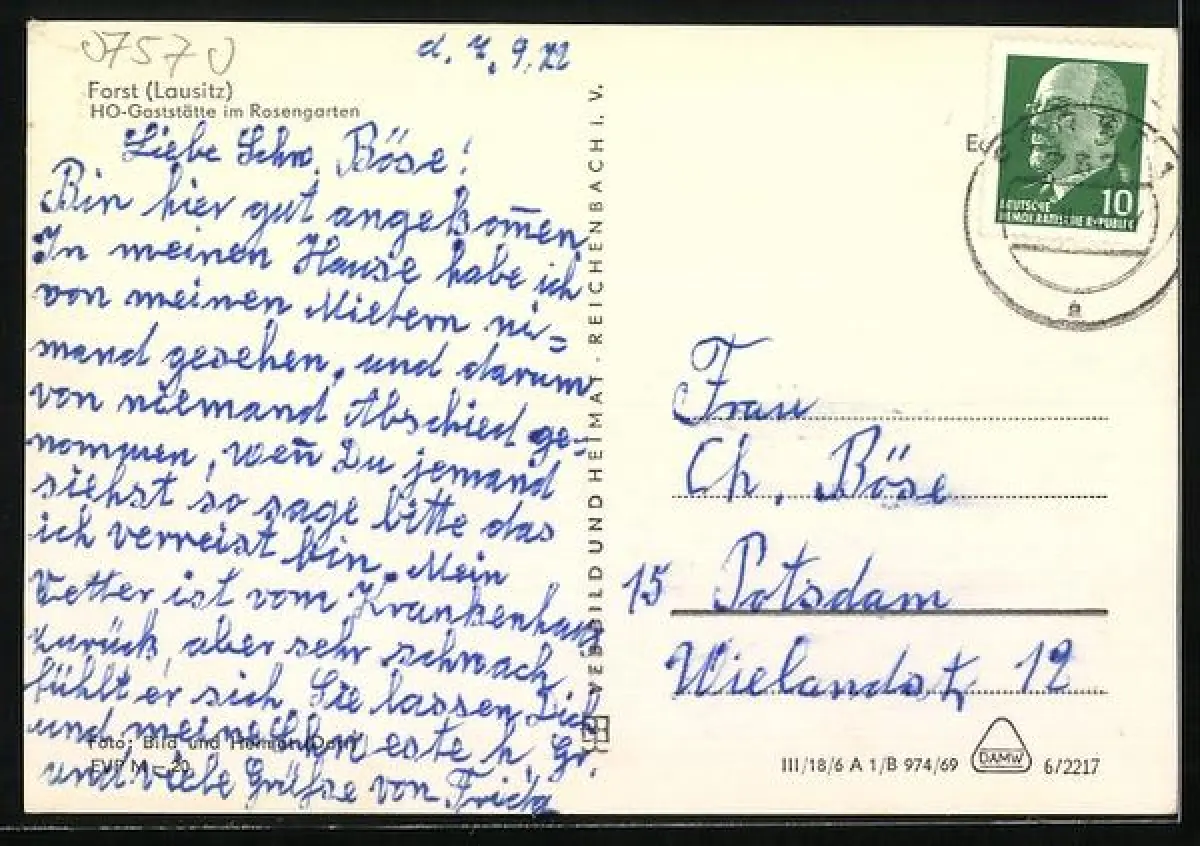 07570
d. 7. 9. 72
Forst (Lausitz)
HO-Gaststätte im Rosengarten
Liebe Schw. Böse!
Bin hier gut angekom̅en
In meinen Hause habe ich
von meinen Mietern ni=
mand gesehen, und darum
von niemand Abschied ge=
nommen, wen̅ Du jemand
siehst so sage bitte das
ich verreist bin. Mein
Vetter ist vom Krankenhaus
zurück, aber sehr schwach
fühlt er sich. Sie lassen Dich
und meine Schweste h. Gr.
und viele Grüße von Frida
Foto: Bild und Heimat
VEB BILD UND HEIMAT · REICHENBACH I. V.
10
DEUTSCHE
DEMOKRATISCHE REPUBLIK
Frau
Ch. Böse
15 Potsdam
Wielandstr. 12
III/18/6 A 1/B 974/69
DAMW
6/2217